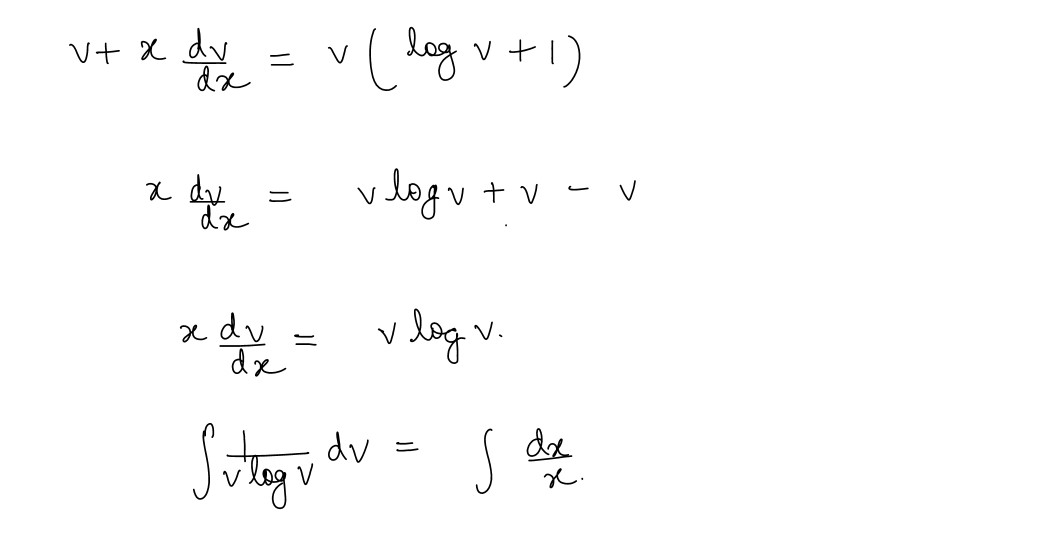 v + x dv/dx = v ( log v + 1 )
x dv/dx = v log v + v - v
x dv/dx = v log v.
∫ 1/(v log v) dv = ∫ dx/x.